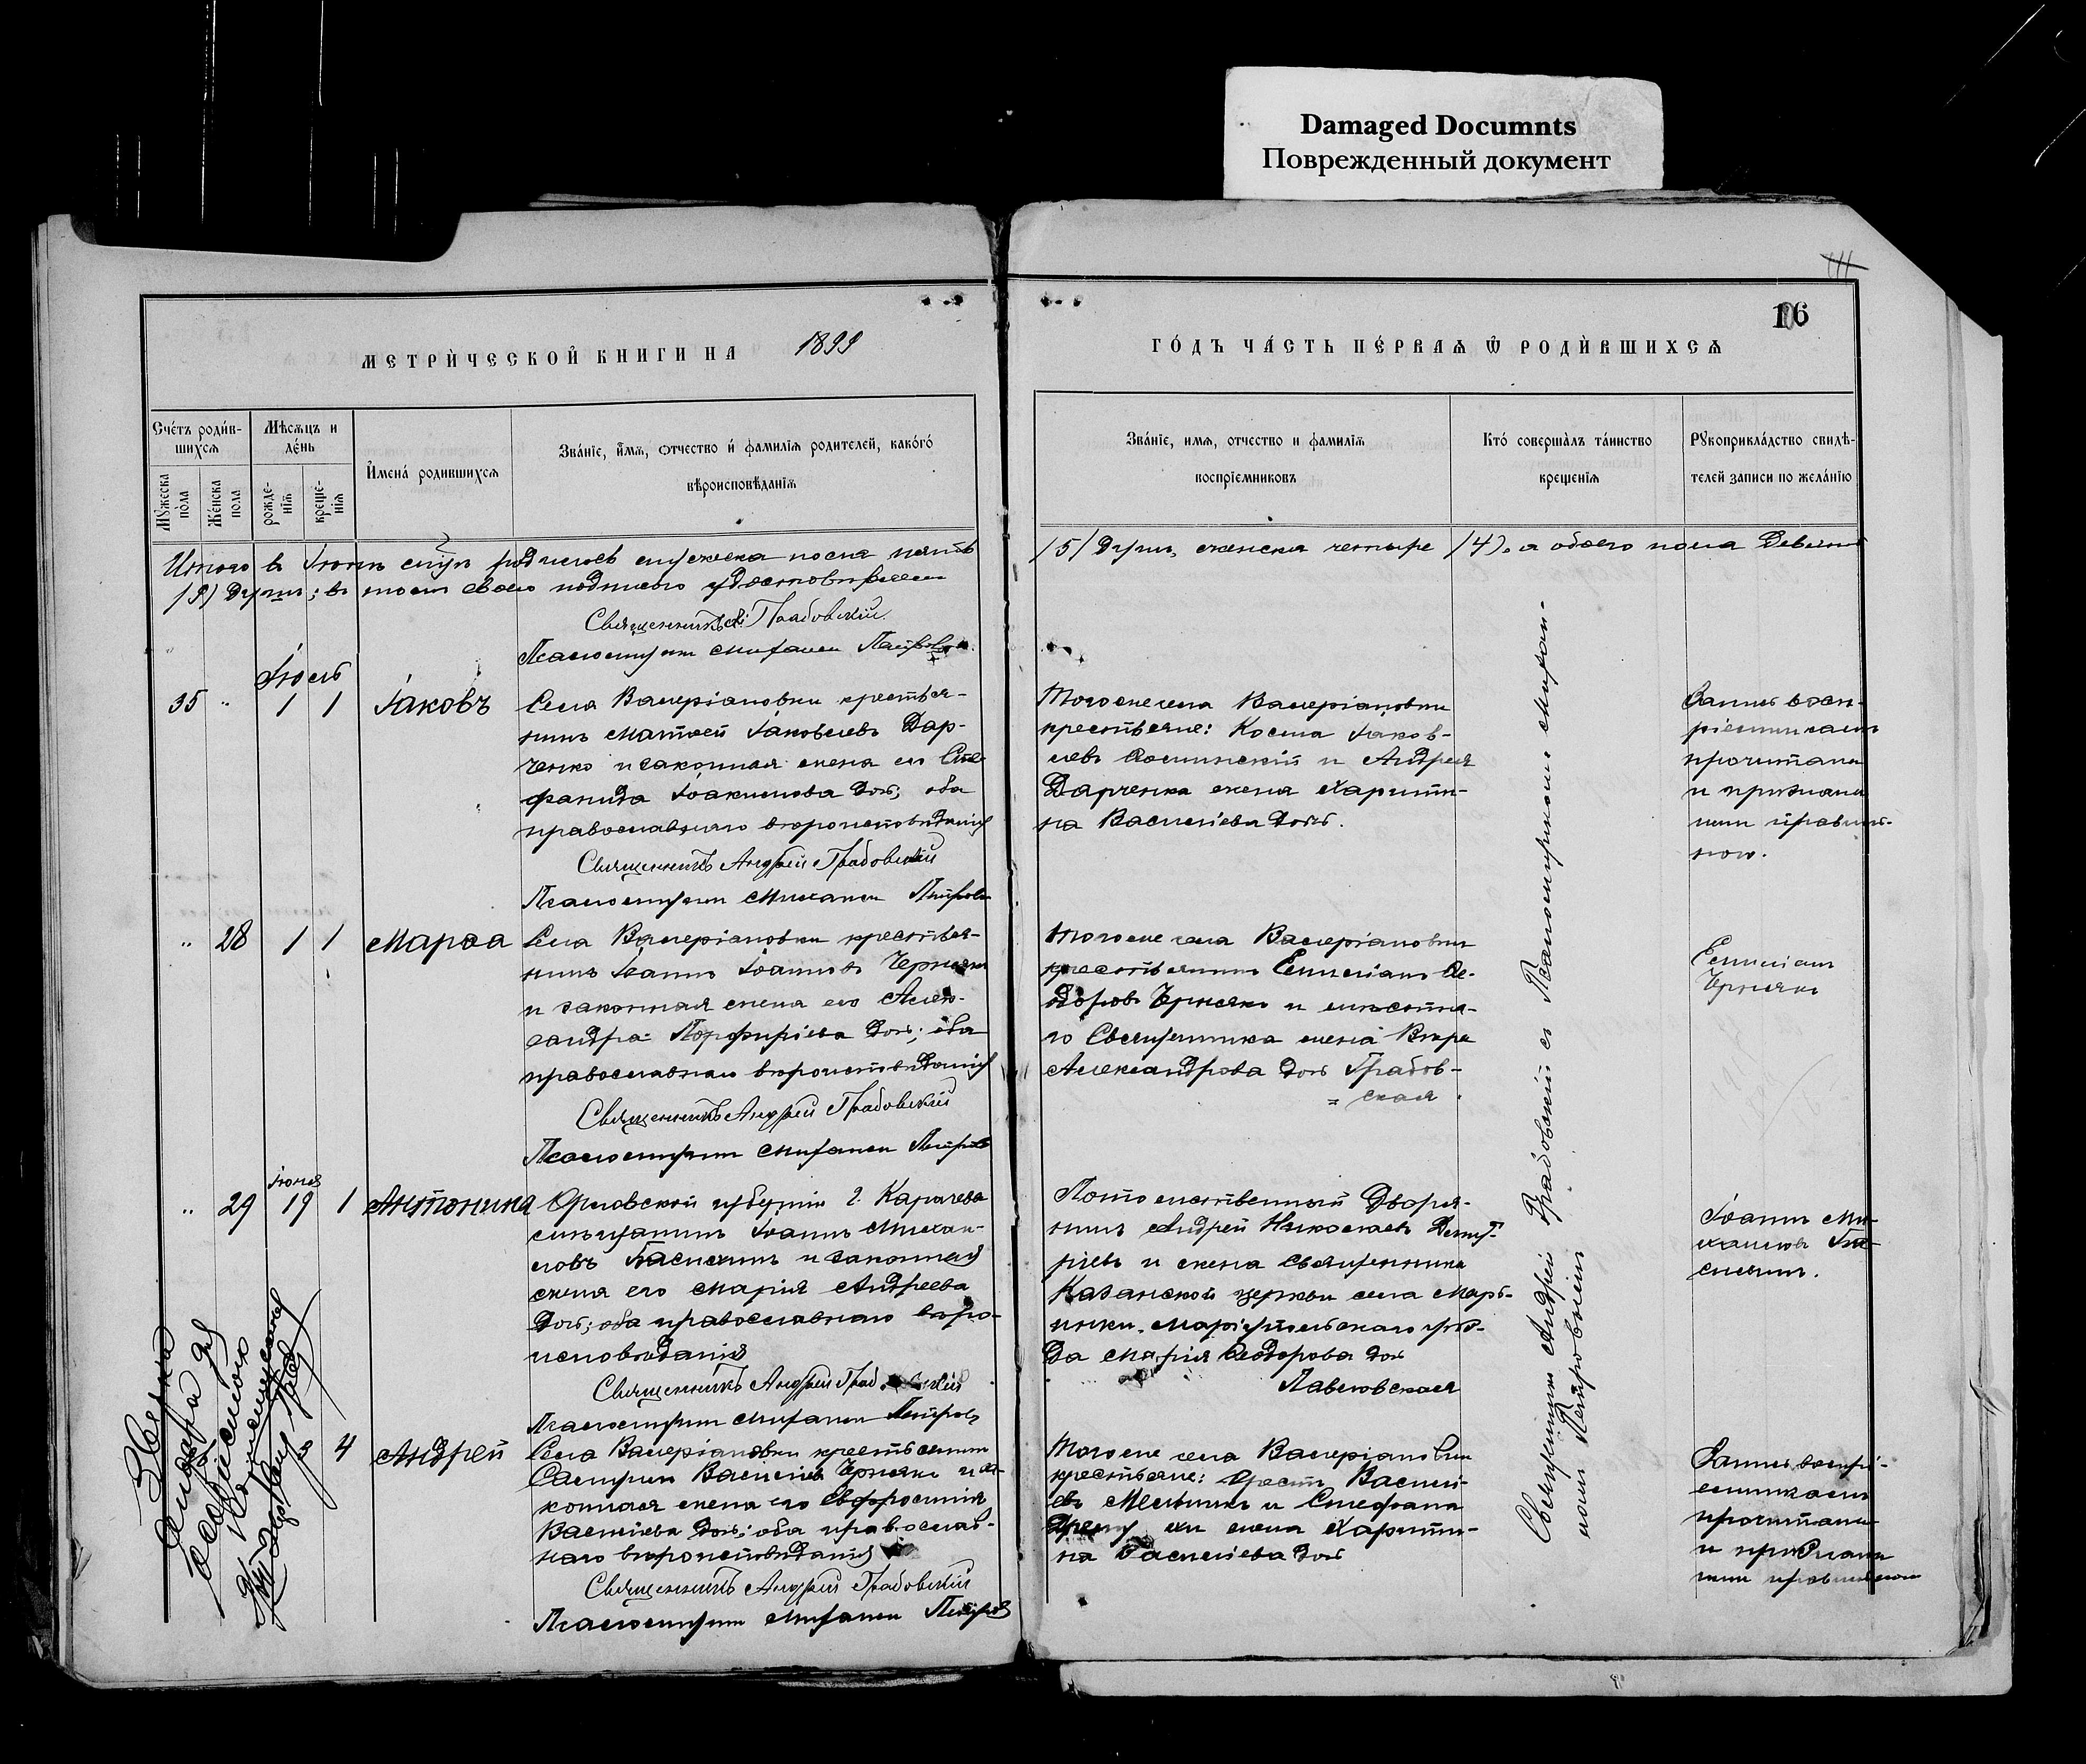 Damaged Documnts
Поврежденный документ
111
16
МЕТРИ́ЧЕСКОЙ КНИГИ НА 1899
ГО́ДЪ ЧА́СТЬ ПЕ́РВАѦ Ѿ РОДИ́ВШИХСѦ
Сче́тъ роди́в-
шихсѧ
Мѣ́сѧцъ и
де́нь
Мꙋ́жеска
по́ла
Же́нска
пола
рожде-
нїѧ
креще-
нїѧ
И҆мена́ родившихсѧ
Зва́нїе, и҆́мѧ, ѻтчество и҆ фамилїѧ родителей, како́гѡ́
вѣроисповѣданїѧ
Зва́нїе, имѧ, отчество и фамилїѧ
воспрїемниковъ
Кто́ совершалъ та́инство
крещенїѧ
Рꙋкоприкла́дство свидѣ-
телей записи по жела́нїю
Итого въ Іюнѣ родилось мужеска пола пять
/5/ душъ, женска четыре /4/, а обоего пола девять
/9/ душъ; въ томъ своею подписью удостовѣряемъ
Священникъ А. Грабовскій
Псаломщикъ Михаилъ Петровъ
Іюль
35 " 1 1 Іаковъ
Села Валеріановки крестья-
нинъ Матвей Іаковлевъ Дар-
ченко и законная жена его Сте
фанида Іоакимова дочь; оба
православнаго вѣроисповѣданія
Священникъ Андрей Грабовскій
Псаломщикъ Михаилъ Петровъ
Тогоже села Валеріановки
крестьяне: Косма Іаков-
левъ и Андрея
Дарченка жена Харити-
на Василіева дочь.
Запись воск-
ріемникамъ
прочитана
и признана
ими правиль-
ною.
" 28 1 1 Марѳа
Села Валеріановки крестья-
нинъ Іоаннъ Іоанновъ Чернякъ
и законная жена его Алек-
сандра Порфиріева дочь; оба
православнаго вѣроисповѣданія
Священникъ Андрей Грабовскій
Псаломщикъ Михаилъ Петровъ
Тогоже села Валеріановки
крестьянинъ Емиліанъ Ѳе-
одоровъ Чернякъ и мѣстна-
го Священника жена Вѣра
Александрова дочь Грабов-
= ская.
Емиліанъ
Чернякъ
Іюня
" 29 19 1 Антонина
Орловской губерніи г. Карачева
мѣщанинъ Іоаннъ Михаи-
ловъ и законная
жена его Марія Андреева
дочь; оба православнаго вѣро-
исповѣданія
Священникъ Андрей Грабовскій
Псаломщикъ Михаилъ Петровъ
Потомственный Дворя-
нинъ Андрей Николаевъ Димит-
ріевъ и жена Священника
Казанской церкви села Марь-
инки, Маріупольскаго уѣз-
да Марія Ѳеодорова дочь
Павловская
Іоаннъ Ми-
хаиловъ
4 Андрей
Села Валеріановки крестьянинъ
Василіевъ Чернякъ и за-
конная жена его Евфросинія
Василіева дочь; оба православ-
наго вѣроисповѣданія
Священникъ Андрей Грабовскій
Псаломщикъ Михаилъ Петровъ
Тогоже села Валеріановки
крестьяне: Василі-
евъ Мельникъ и Стефана
жена Харити-
на Василіева дочь
Запись воспрі-
емникамъ
прочитана
и признана
ими правильною
Священникъ Андрей Грабовскій съ Псаломщикомъ Михаи-
ломъ Петровымъ